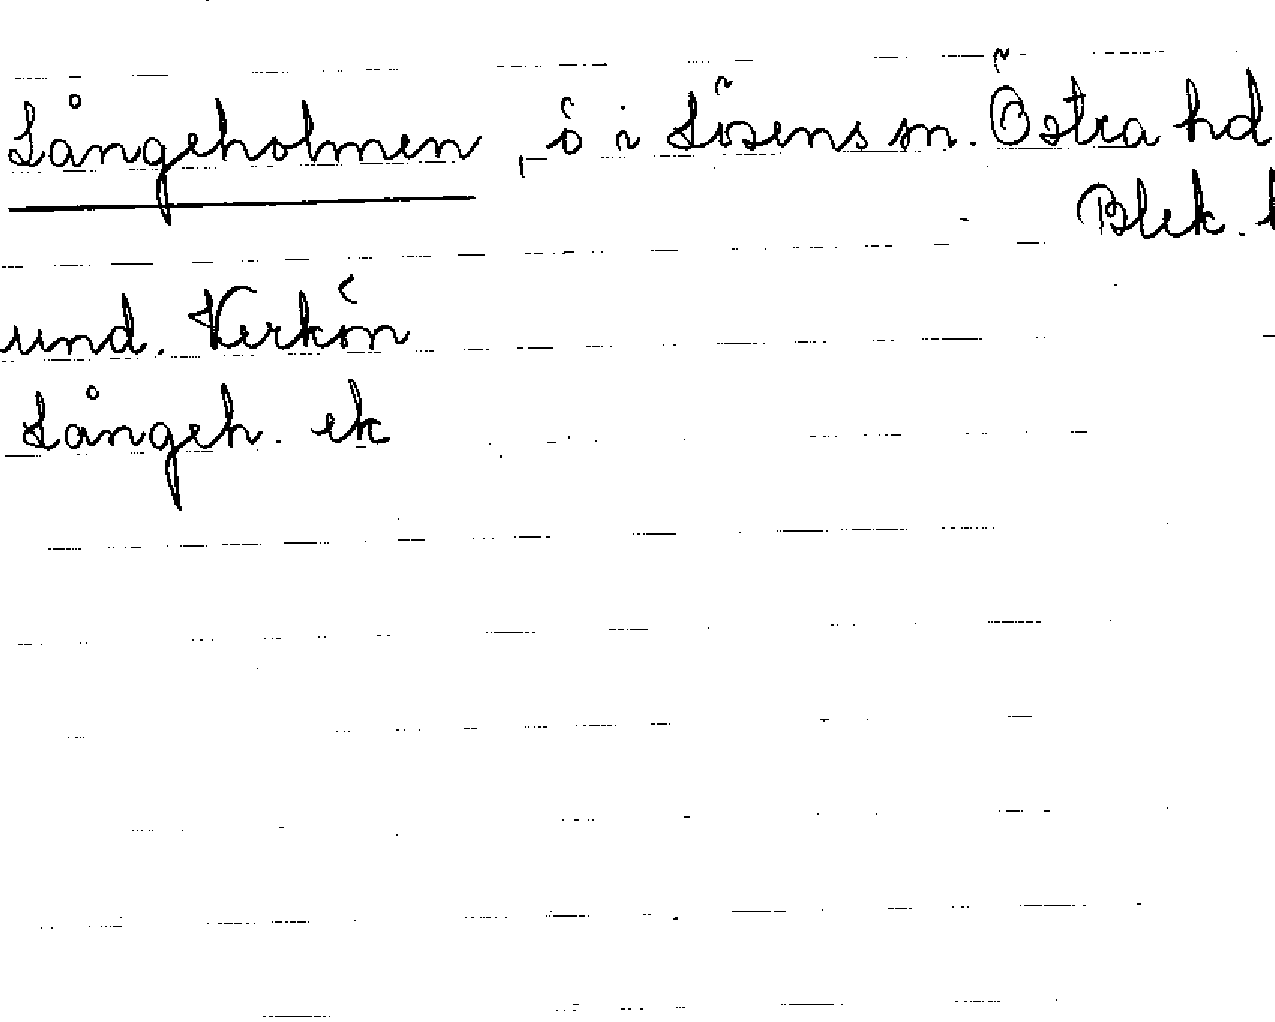 Långeholmen, ö i Lösens sn. Östra hd
Blek. l
und. Verkön
Långeh. ek